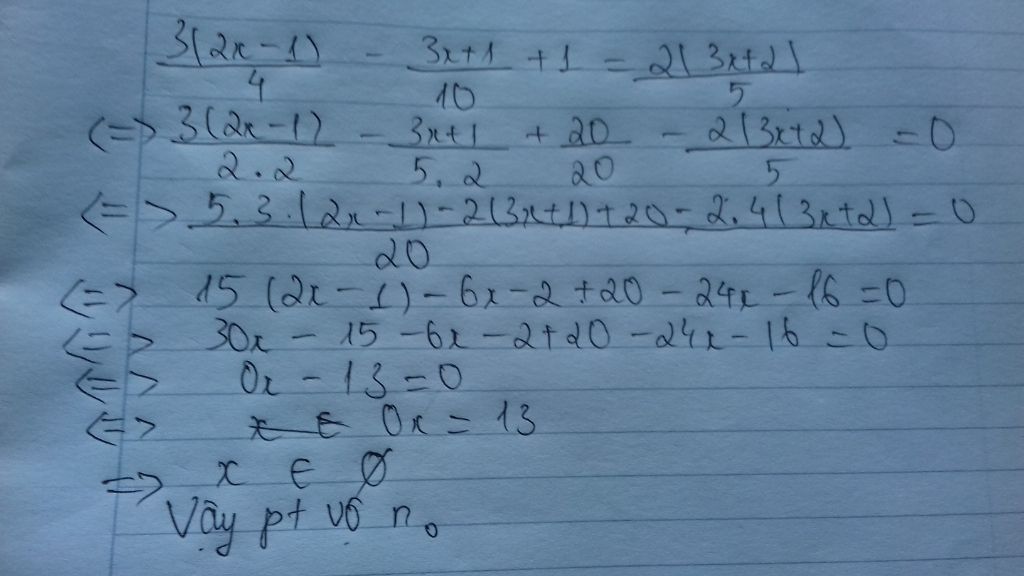 3(2x-1)/4 - 3x+1/10 + 1 = 2(3x+2)/5
<=> 3(2x-1)/2.2 - 3x+1/5.2 + 20/20 - 2(3x+2)/5 = 0
<=> 5.3.(2x-1)-2(3x+1)+20-2.4(3x+2)/20 = 0
<=> 15(2x-1)-6x-2+20-24x-16=0
<=> 30x-15-6x-2+20-24x-16=0
<=> 0x-13=0
<=> x ∈ 0x=13
=> x ∈ Ø
Vậy pt vô n₀